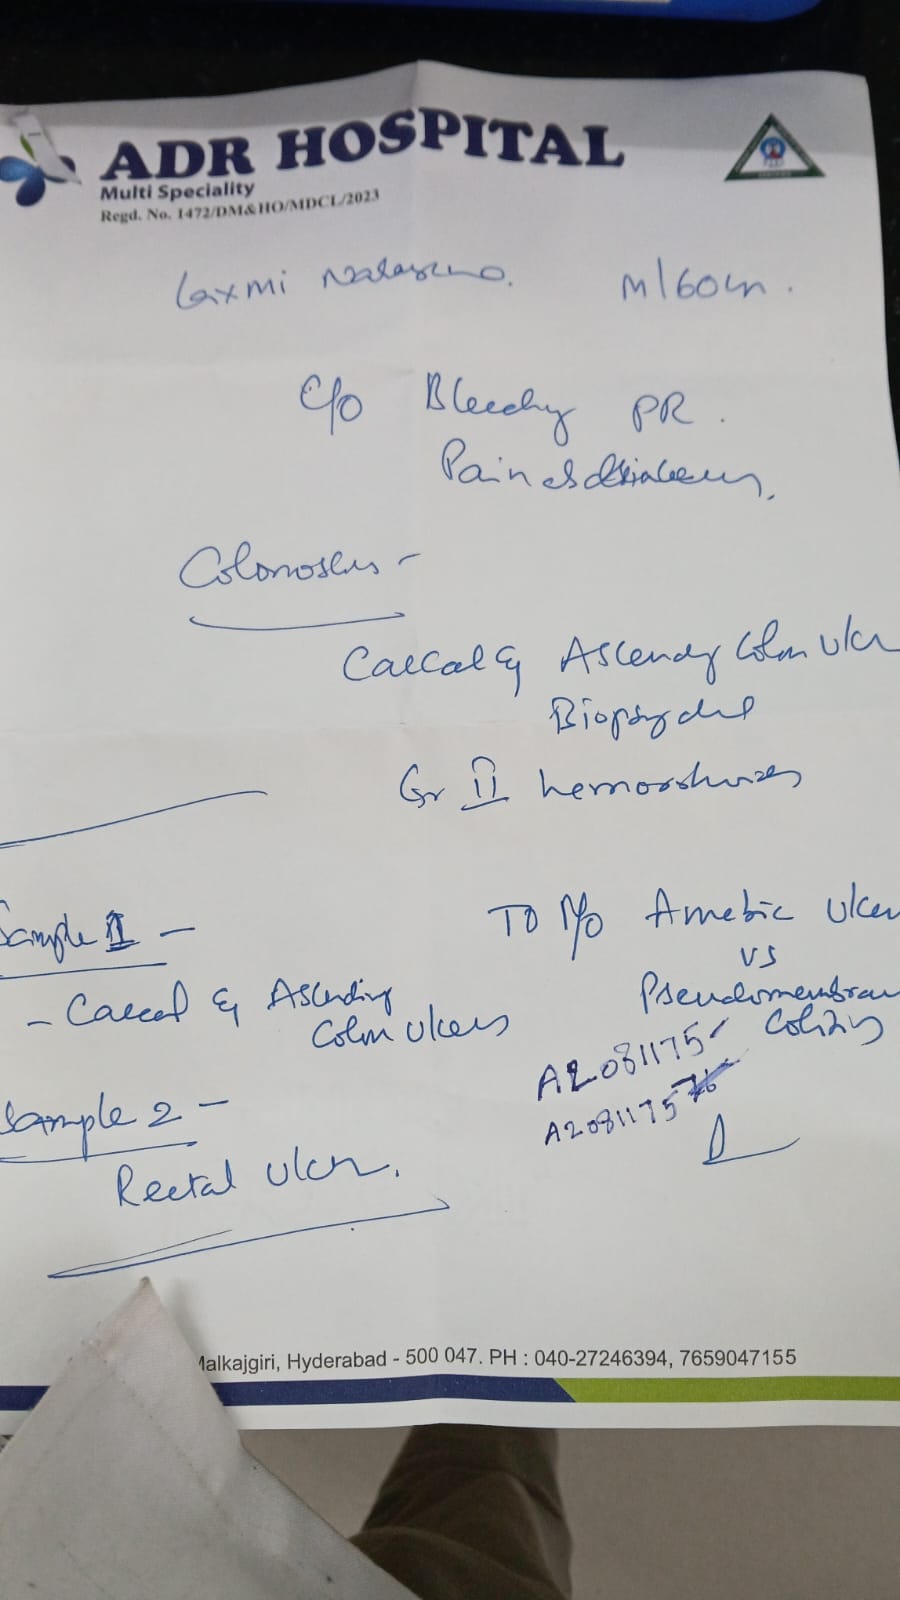 ADR HOSPITAL
Multi Speciality
Regd. No. 1472/DM&HO/MDCL/2023
Laxmi M/60
C/o Bleeding PR.
Pain
Colonoscopy -
Caecal & Ascending Colon Ulcer
Biopsy
Gr II hemorrhoids
Sample 1 -
- Caecal & Ascending
Colon Ulcers
To R/o Amebic Ulcer
vs
Pseudomembran
Colitis
A2081175
A2081175
Sample 2 -
Rectal Ulcer.
Malkajgiri, Hyderabad - 500 047. PH : 040-27246394, 7659047155